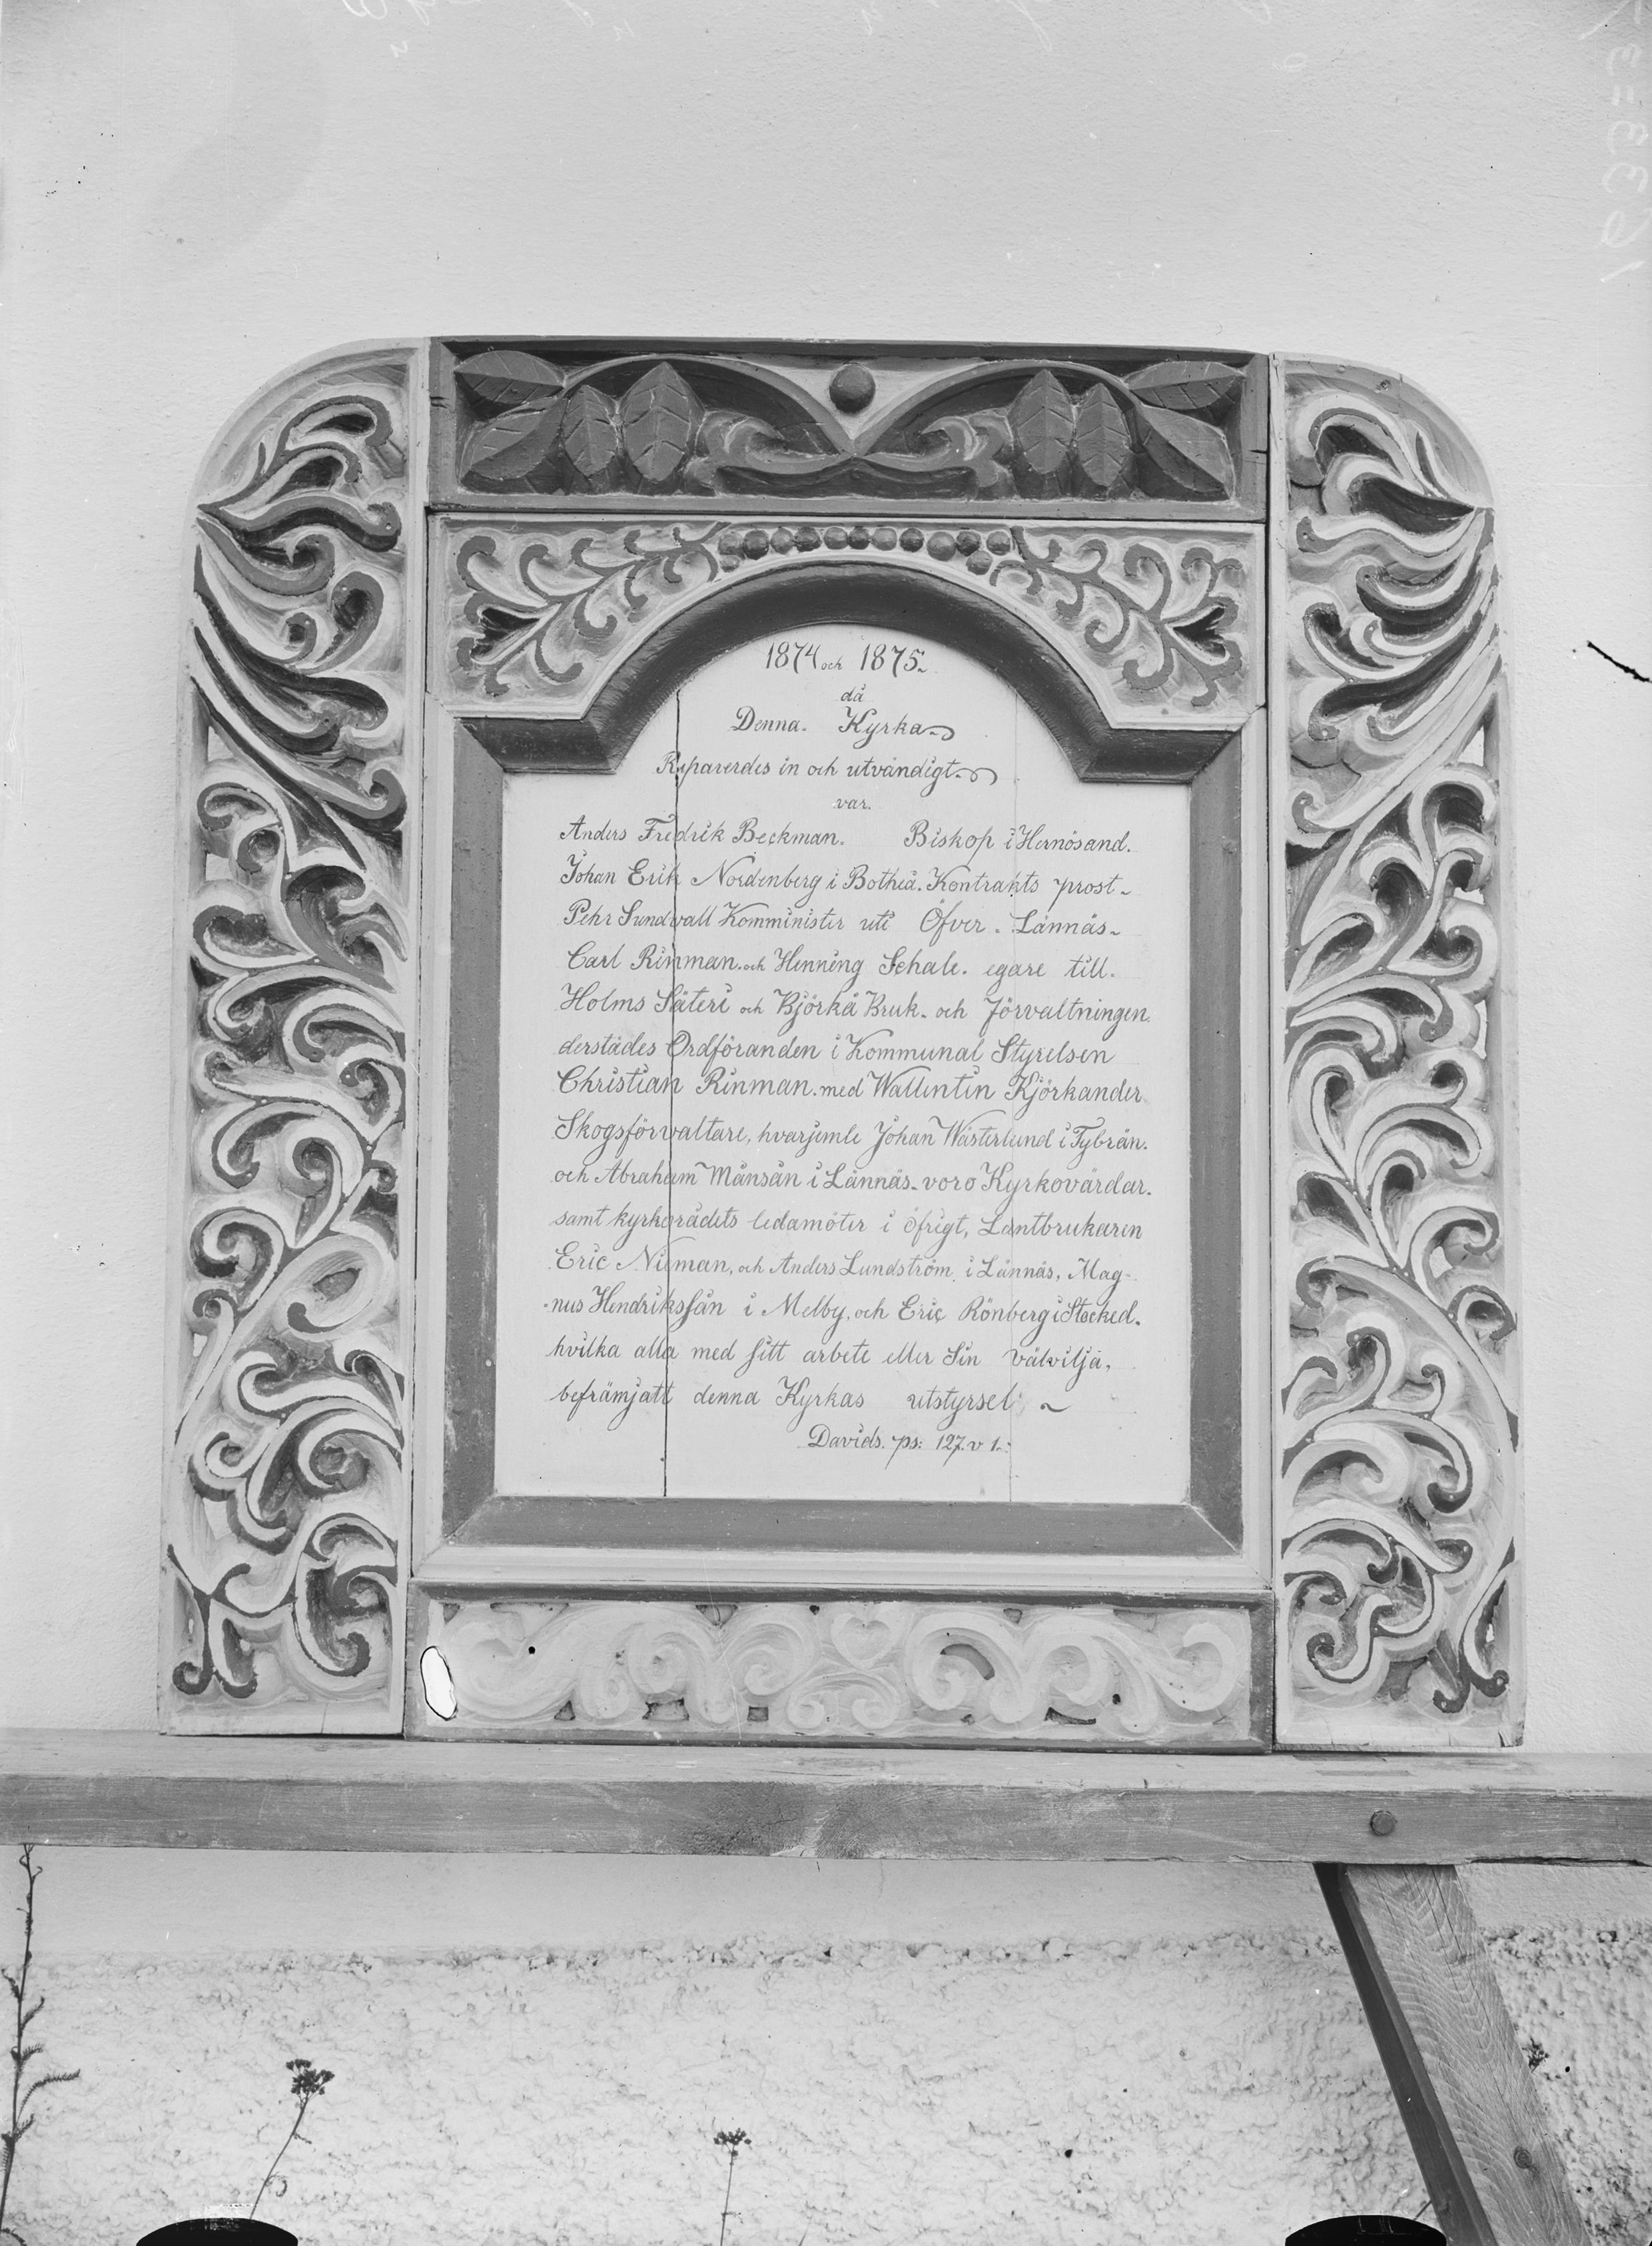 1874 och 1875.
då
Denna. Kyrka
Reparerdes in och utvändigt.
var.
Anders Fredrik Beckman. Biskop i Hernösand.
Johan Erik Nordenberg i Botheå. Kontrakts prost.
Pehr Sundwall Komminister uti Öfver. Lännäs.
Carl Rinman. och Henning Schale. egare till.
Holms Säteri och Björkå Bruk. och förvaltningen.
derstädes Ordföranden i Kommunal Styrelsen
Christian Rinman. med Wallentin Kjörkander
Skogsförvaltare, hvarjemle Johan Wästerlund i Tybrän.
och Abraham Månsån i Lännäs. voro Kyrkovärdar.
samt kyrkorådets ledamöter i öfrigt, Lantbrukaren
Eric Nisman, och Anders Lundström, i Lännäs, Mag-
nus Hendrikssån i Melby, och Eric Rönberg i Stocked.
hvilka alla med sitt arbete eller Sin Välvilja,
befrämjatt denna Kyrkas utstyrsel
Davids. ps: 127. v 1.